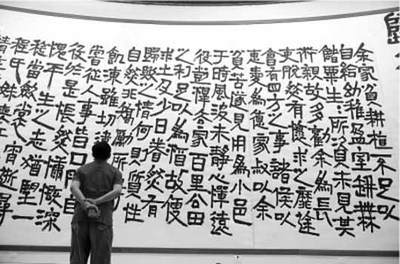 余家貧耕植不足以
自給幼稚盈室缾無
儲粟生生所資未見其
術親故多勸余為長
吏脫然有懷求之靡途
會有四方之事諸侯以
惠愛為德家叔以余
貧苦遂見用為小邑
于時風波未靜心憚遠
役彭澤去家百里公田
之利足以為酒故便
求之及少日眷然有
歸歟之情何則質性
自然非矯厲所
飢凍雖切違
嘗從人事皆口
役於是悵然慷慨深
愧平生之志猶望一
稔當斂裳宵逝尋
程氏妹喪